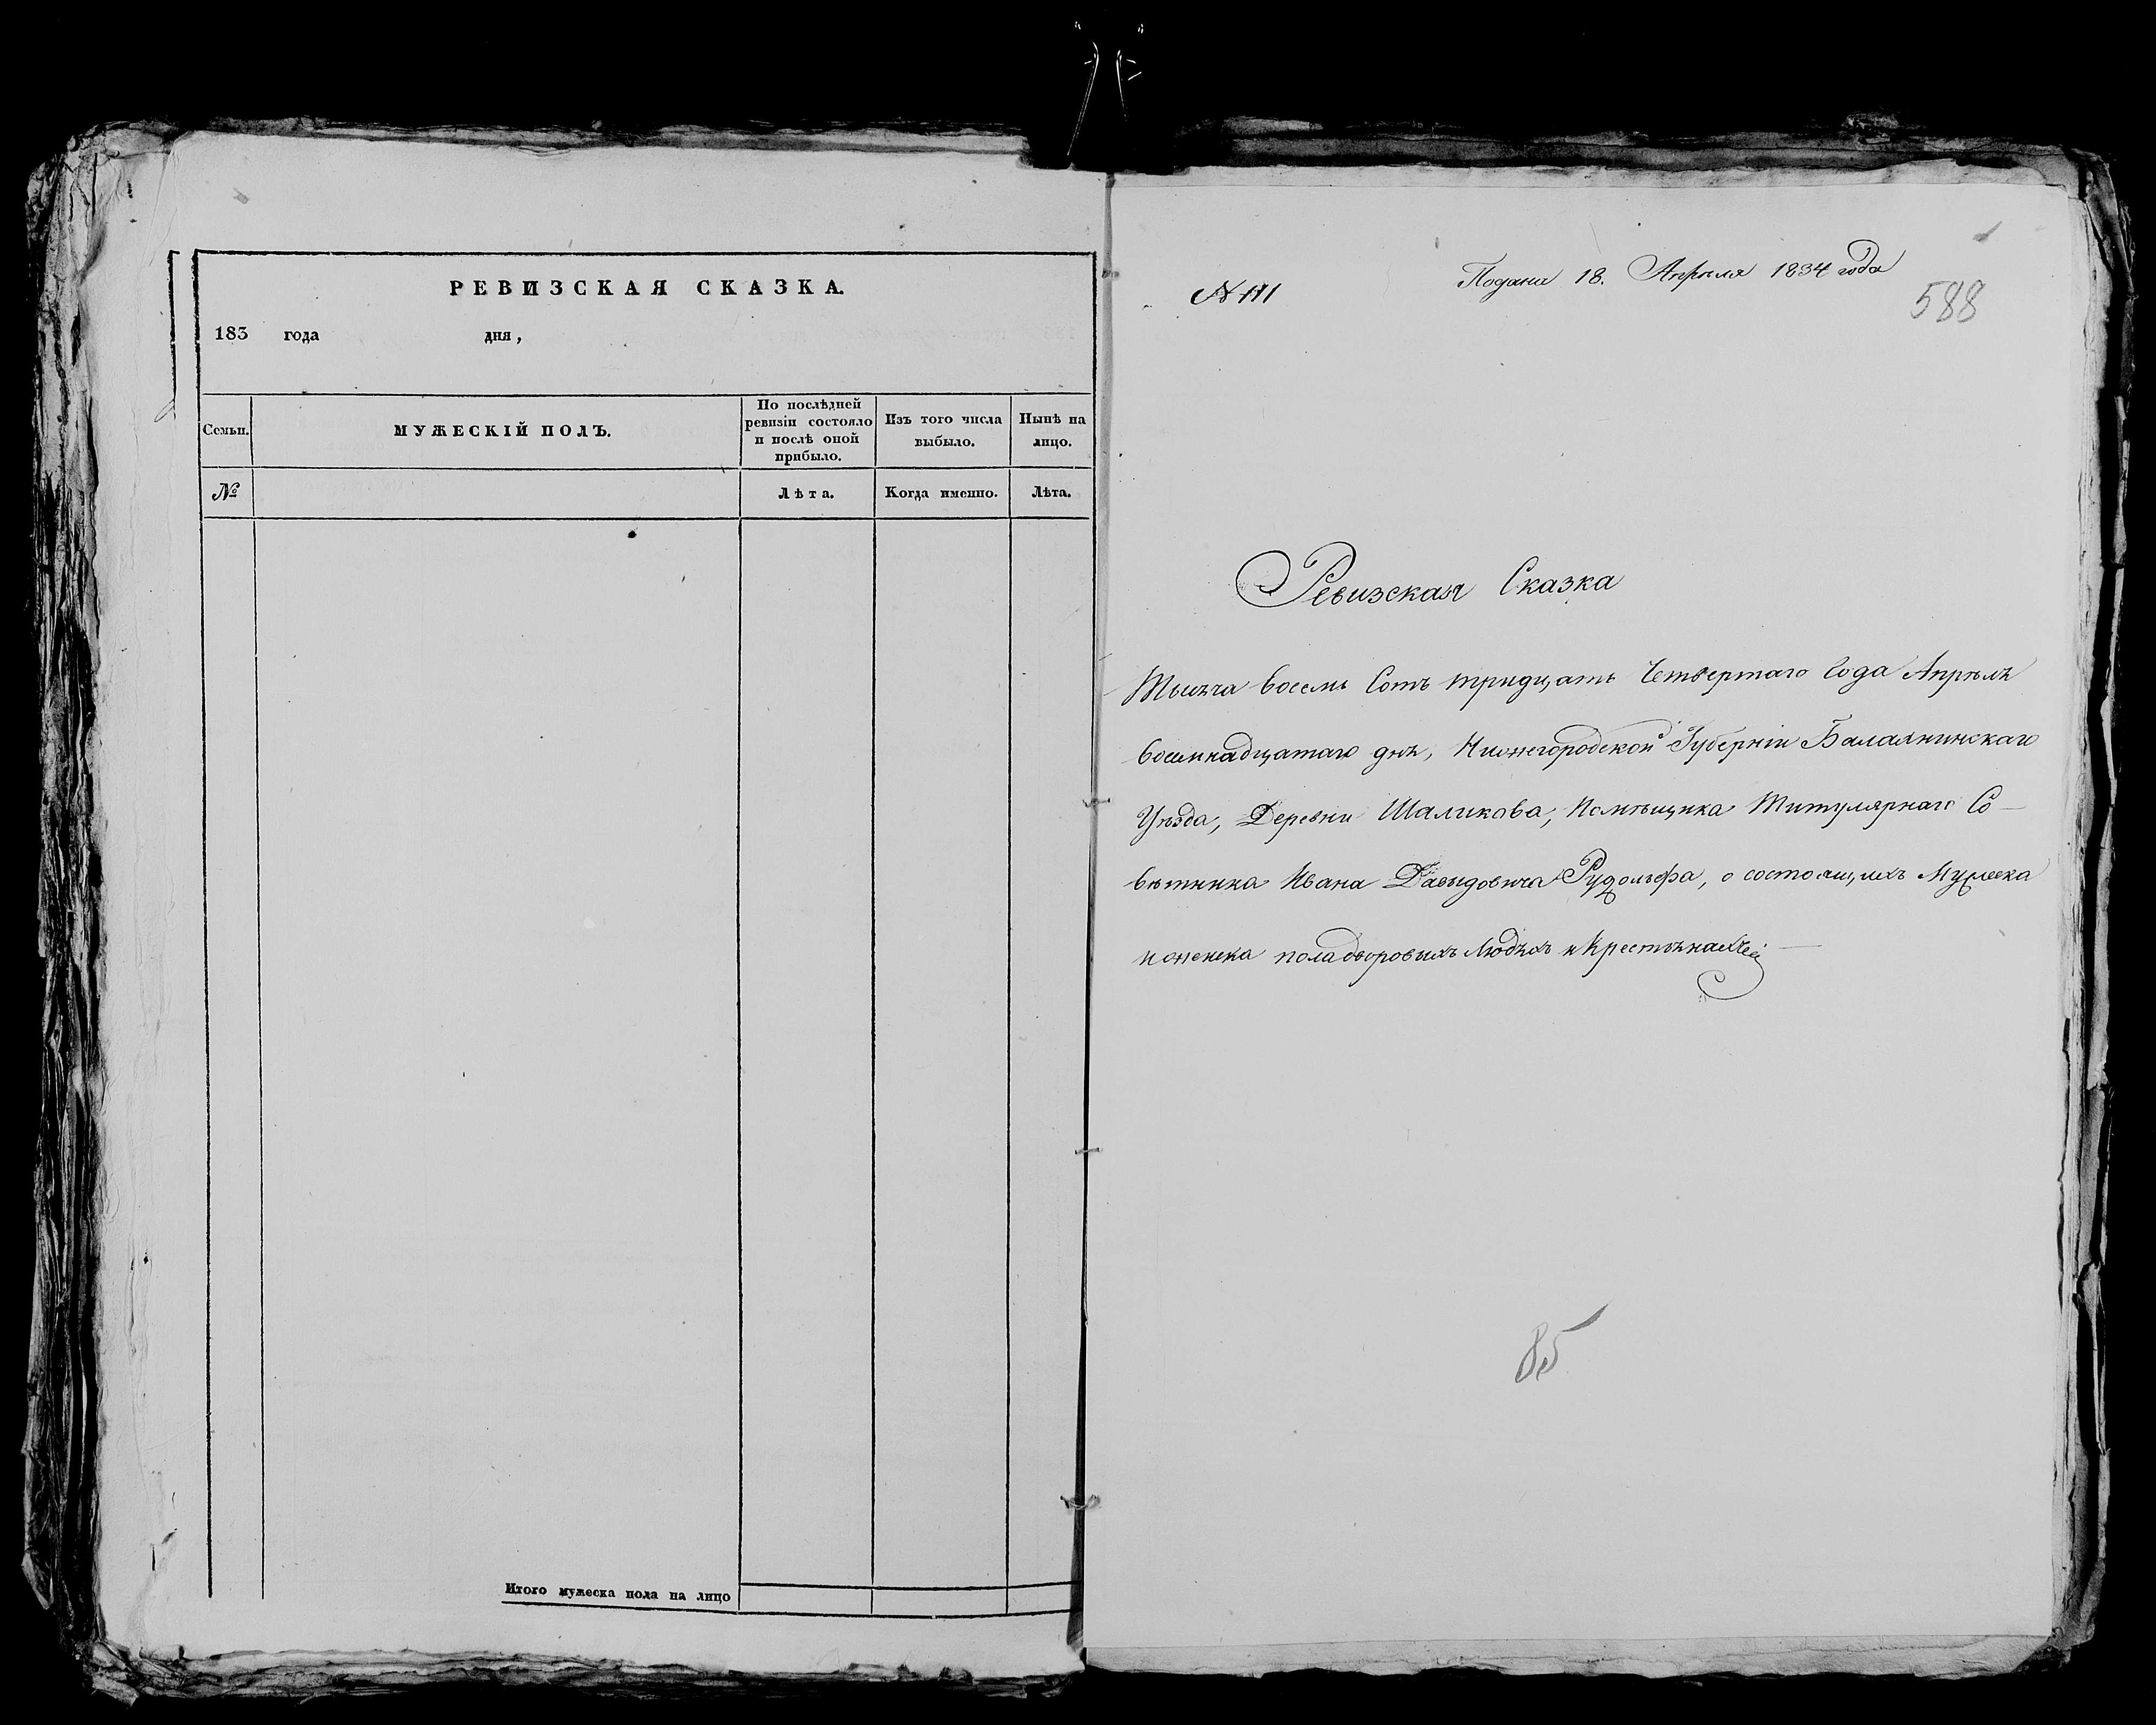 РЕВИЗСКАЯ СКАЗКА.
183 года дня,
Семьи.
МУЖЕСКІЙ ПОЛЪ.
По послѣдней
ревизіи состояло
и послѣ оной
прибыло.
Изъ того числа
выбыло.
Нынѣ на
лицо.
№
Лѣта.
Когда именно.
Лѣта.
Итого мужеска пола на лицо
N 111
Подана 18. Апреля 1834 года
588
Ревизская Сказка
Тысяча восемь Сотъ тридцать Четвертаго Года Апрѣля
восемнадцатаго дня, Нижегородской Губерніи Балахнинскаго
Уѣзда, Деревни Шаликова, Помѣщика Титулярнаго Со-
вѣтника Ивана Давыдовича Рудольфа, о состоящихъ Мужеска
и женска пола дворовыхъ Людяхъ и Крестьянахъ
85